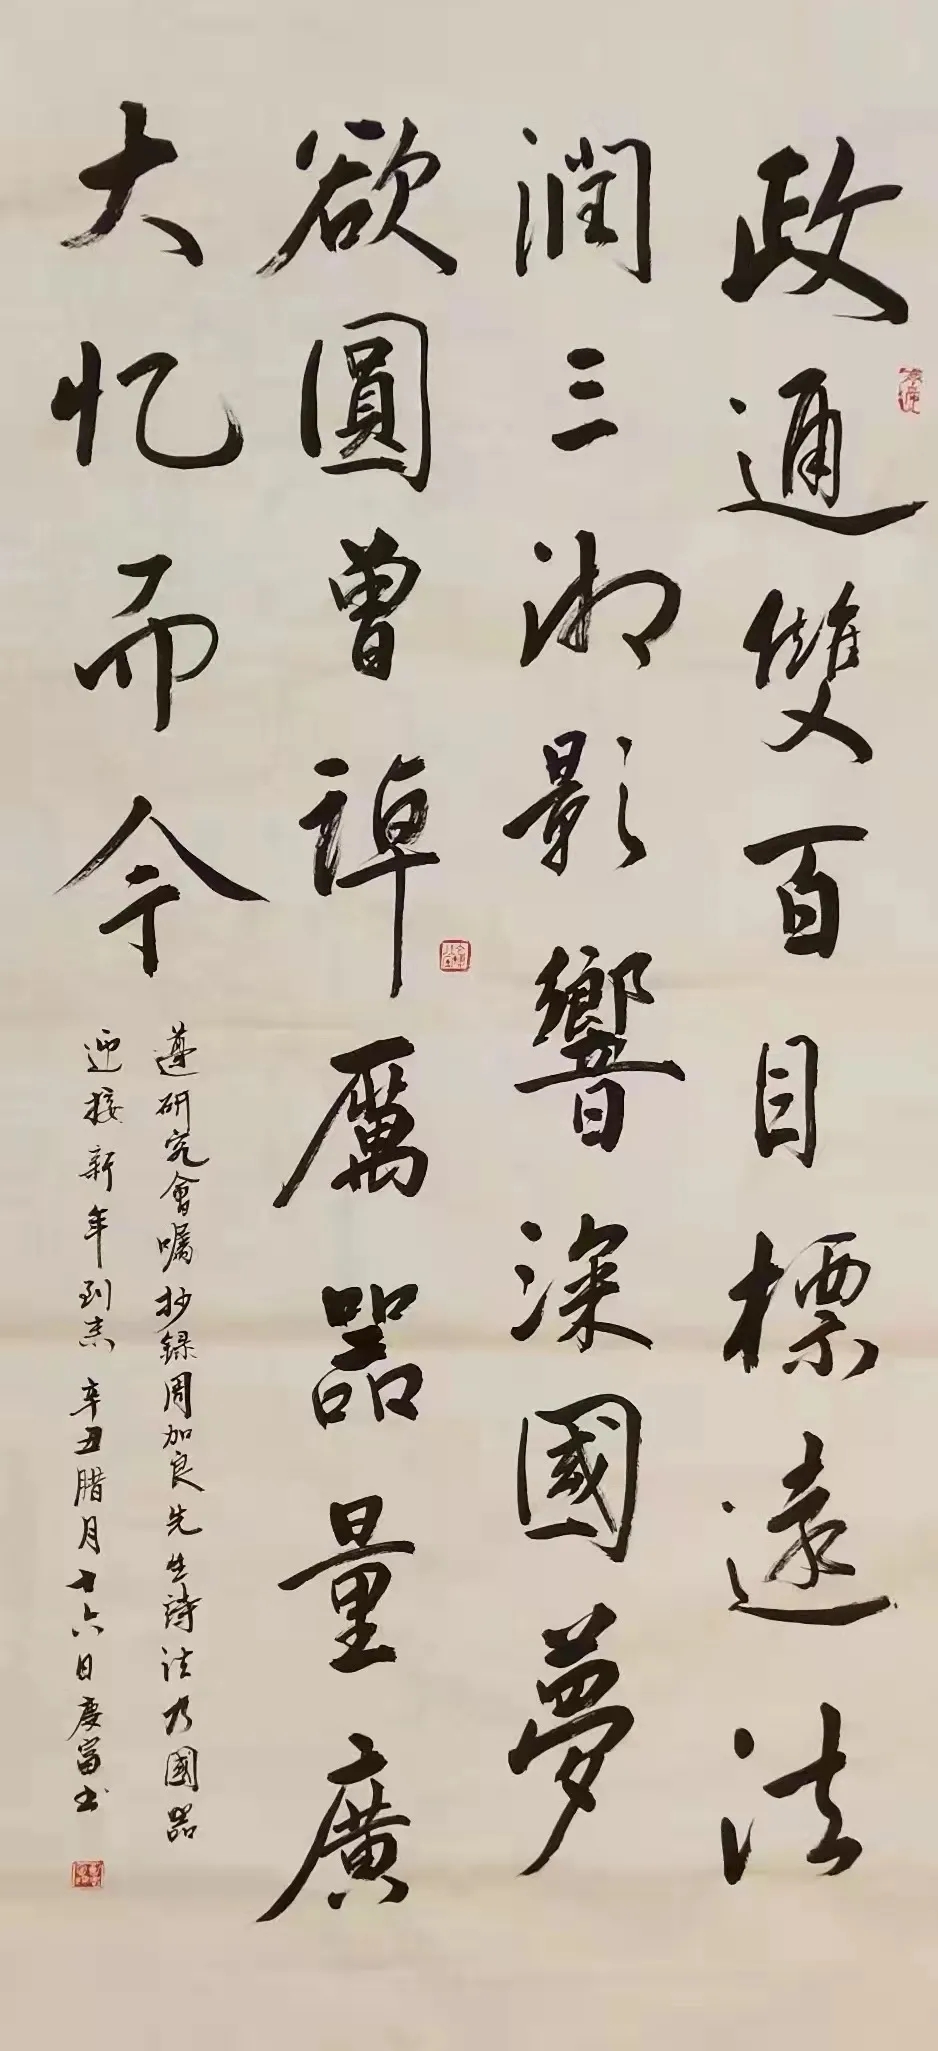 政通雙百目標遠法
潤三湘影響深國夢
欲圓曾踔厲器量廣
大忆而今
遵研究會嘱抄録周加良先生詩法乃國器
迎接新年到来 辛丑腊月十六日慶富书